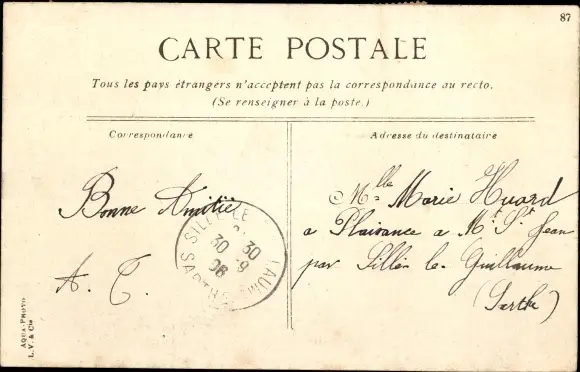 87
CARTE POSTALE
Tous les pays étrangers n'acceptent pas la correspondance au recto.
(Se renseigner à la poste.)
Correspondance
Adresse du destinataire
Bonne Amitié
A. C.
Mlle Marie Huard
a Plaisance a Mt St Jean
par Sillé le Guillaume
(Sarthe)
SILLÉ-LE
30
30 -9
06
SARTHE
AQUA-PHOTO
L. V. & Cie